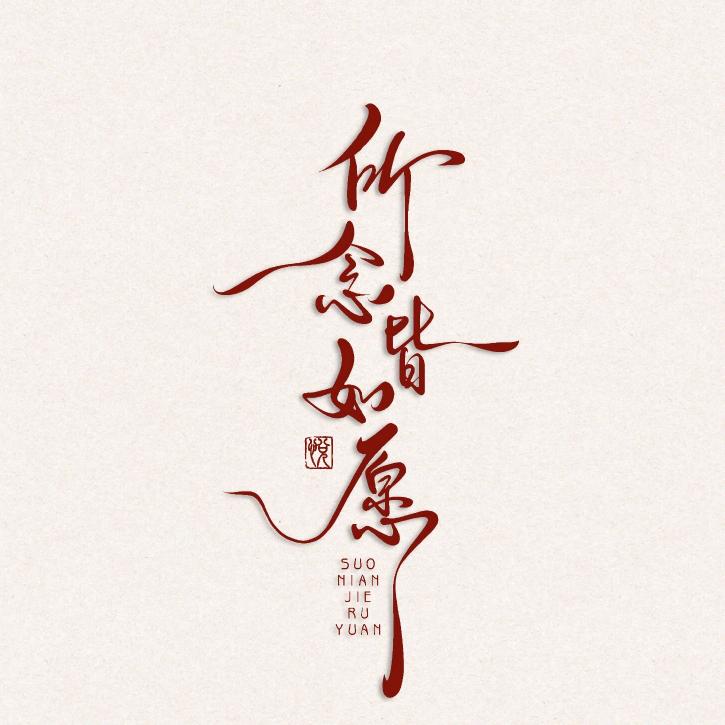 所念皆如愿
悦
SUO
NIAN
JIE
RU
YUAN